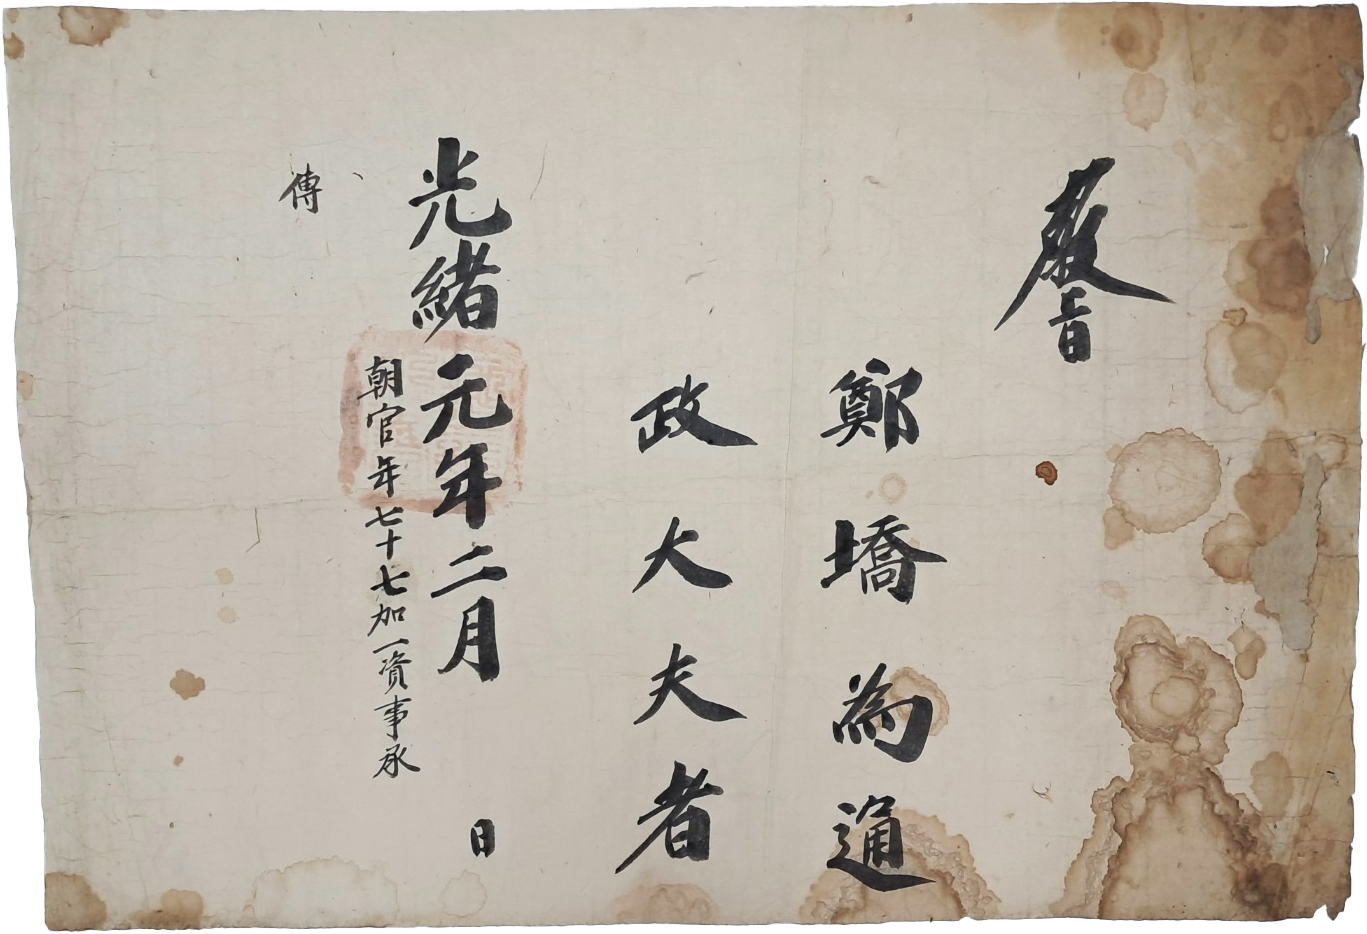 敎旨
鄭墧為通
政大夫者
光緖元年二月 日
朝官年七十七加一資事承
傳